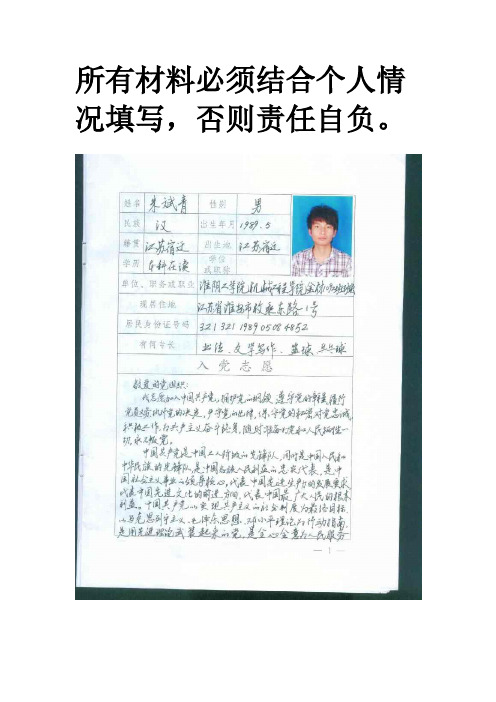 所有材料必须结合个人情
况填写，否则责任自负。
姓名 朱斌青 性别 男
民族 汉 出生年月 1989.5
籍贯 江苏宿迁 出生地 江苏宿迁
学历 本科在读 学位或职称
单位、职务或职业 淮阴工学院机械工程学院
现居住地 江苏省淮安市枚乘东路1号
居民身份证号码 321321198905084852
有何专长 书法、文学写作、篮球、乒乓球
入党志愿
敬爱的党组织：
我志愿加入中国共产党，拥护党的纲领，遵守党的章程，履行
党员义务，执行党的决定，严守党的纪律，保守党的秘密，对党忠诚，
积极工作，为共产主义奋斗终身，随时准备为党和人民牺牲一
切，永不叛党。
中国共产党是中国工人阶级的先锋队，同时是中国人民和
中华民族的先锋队，是中国各族人民利益的忠实代表，是中
国社会主义事业的领导核心，代表中国先进生产力的发展要求，
代表中国先进文化的前进方向，代表中国最广大人民的根本
利益。中国共产党以实现共产主义的社会制度为最终目标，
以马克思列宁主义、毛泽东思想、邓小平理论为行动指南，
是用先进理论武装起来的党，是全心全意为人民服务
— 1 —